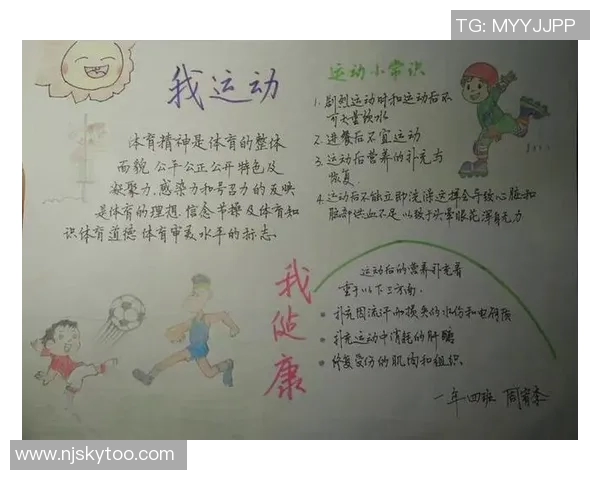 TG: MYYJJPP
我运动
体育精神是体育的整体
面貌.公平公正公开特色及
凝聚力.感染力和号召力的反映
是体育的理想.信念节操及体育知
识体育道德体育审美水平的标志.
运动小常识
1. 剧烈运动时和运动后不
可大量饮水
2. 进餐后不宜运动
3. 运动后营养的补充与
恢复.
4. 运动后不能立即洗澡这样会导致心脏和
脑部供血不足以致于头晕眼花浑身无力
我健康
运动后的营养补充着
重于以下三方面.
补充因流汗而损失的水份和电解质
补充运动中消耗的肝糖
修复受伤的肌肉和组织.
一年四班
www.njskytoo.com